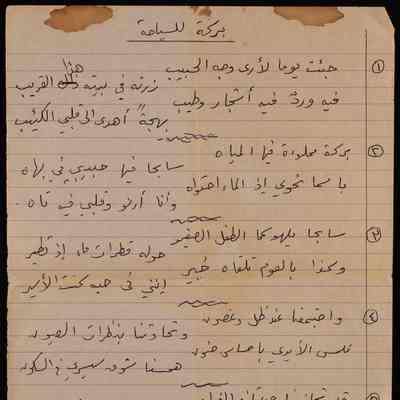 بركة للسباحة
① جئت يوما لأرى وجه الحبيب زرته في بيته هذا القريب
فيه وردٌ فيه أشجار وطيب بهجةً أهدى الى قلبي الكئيب
② بركة مملوءة فيها المياه سابحا فيها حبيبي في بهاه
باسما نحوي إذ الماء احتواه وأنا أرنو وقلبي فيه تاه
③ سابحا يلهو كما الطفل الصغير حوله قطرات ماء إذ تطير
وكذا بالعوم تلقاه خبير إنني في حبه كنت الأسير
④ واجتمعنا عند ظل وغصون وتحادثنا بنظرات العيون
تلمس الأيدي باحساس حنون همسنا شوق في السكون